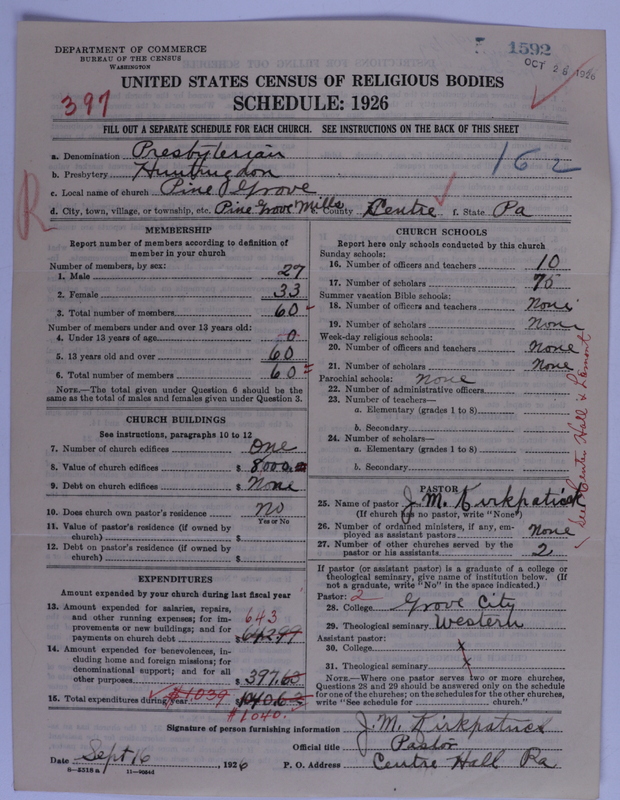 DEPARTMENT OF COMMERCE
BUREAU OF THE CENSUS
WASHINGTON
1592
OCT 28 1926
UNITED STATES CENSUS OF RELIGIOUS BODIES
SCHEDULE: 1926
397
FILL OUT A SEPARATE SCHEDULE FOR EACH CHURCH. SEE INSTRUCTIONS ON THE BACK OF THIS SHEET
a. Denomination Presbyterian
162
b. Presbytery Huntingdon
c. Local name of church Pine Grove
d. City, town, village, or township, etc. Pine Grove Mills e. County Centre f. State Pa
R
MEMBERSHIP
Report number of members according to definition of member in your church
Number of members, by sex:
1. Male 27
2. Female 33
3. Total number of members 60
Number of members under and over 13 years old:
4. Under 13 years of age 0
5. 13 years old and over 60
6. Total number of members 60
NOTE.—The total given under Question 6 should be the
same as the total of males and females given under Question 3.
CHURCH BUILDINGS
See instructions, paragraphs 10 to 12
7. Number of church edifices One
8. Value of church edifices $ 8000.00
9. Debt on church edifices $ None
10. Does church own pastor's residence No
Yes or No
11. Value of pastor's residence (if owned by
church) $
12. Debt on pastor's residence (if owned by
church) $
EXPENDITURES
Amount expended by your church during last fiscal year
13. Amount expended for salaries, repairs,
and other running expenses; for im- 643
provements or new buildings; and for
payments on church debt $ 642.99
14. Amount expended for benevolences, in-
cluding home and foreign missions; for
denominational support; and for all
other purposes $ 397.63
15. Total expenditures during year $1,039 $ 1040.63
$1040.
CHURCH SCHOOLS
Report here only schools conducted by this church
Sunday schools:
16. Number of officers and teachers 10
17. Number of scholars 75
Summer vacation Bible schools:
18. Number of officers and teachers None
19. Number of scholars None
Week-day religious schools:
20. Number of officers and teachers None
21. Number of scholars None
Parochial schools: None
22. Number of administrative officers
23. Number of teachers—
a. Elementary (grades 1 to 8)
b. Secondary
24. Number of scholars—
a. Elementary (grades 1 to 8)
b. Secondary
See Center Hall & Lemont
PASTOR
25. Name of pastor J. M. Kirkpatrick
(If church has no pastor, write "None")
26. Number of ordained ministers, if any, em-
ployed as assistant pastors None
27. Number of other churches served by the
pastor or his assistants 2
If pastor (or assistant pastor) is a graduate of a college or
theological seminary, give name of institution below. (If
not a graduate, write "No" in the space indicated.)
Pastor: 2
28. College Grove City
29. Theological seminary Western
Assistant pastor:
30. College x
31. Theological seminary x
NOTE.—Where one pastor serves two or more churches,
Questions 28 and 29 should be answered only on the schedule
for one of the churches; on the schedules for the other churches,
write "See schedule for church."
Signature of person furnishing information J. M. Kirkpatrick
Official title Pastor
Date Sept 16, 1926 P. O. Address Centre Hall Pa
8—5518 a